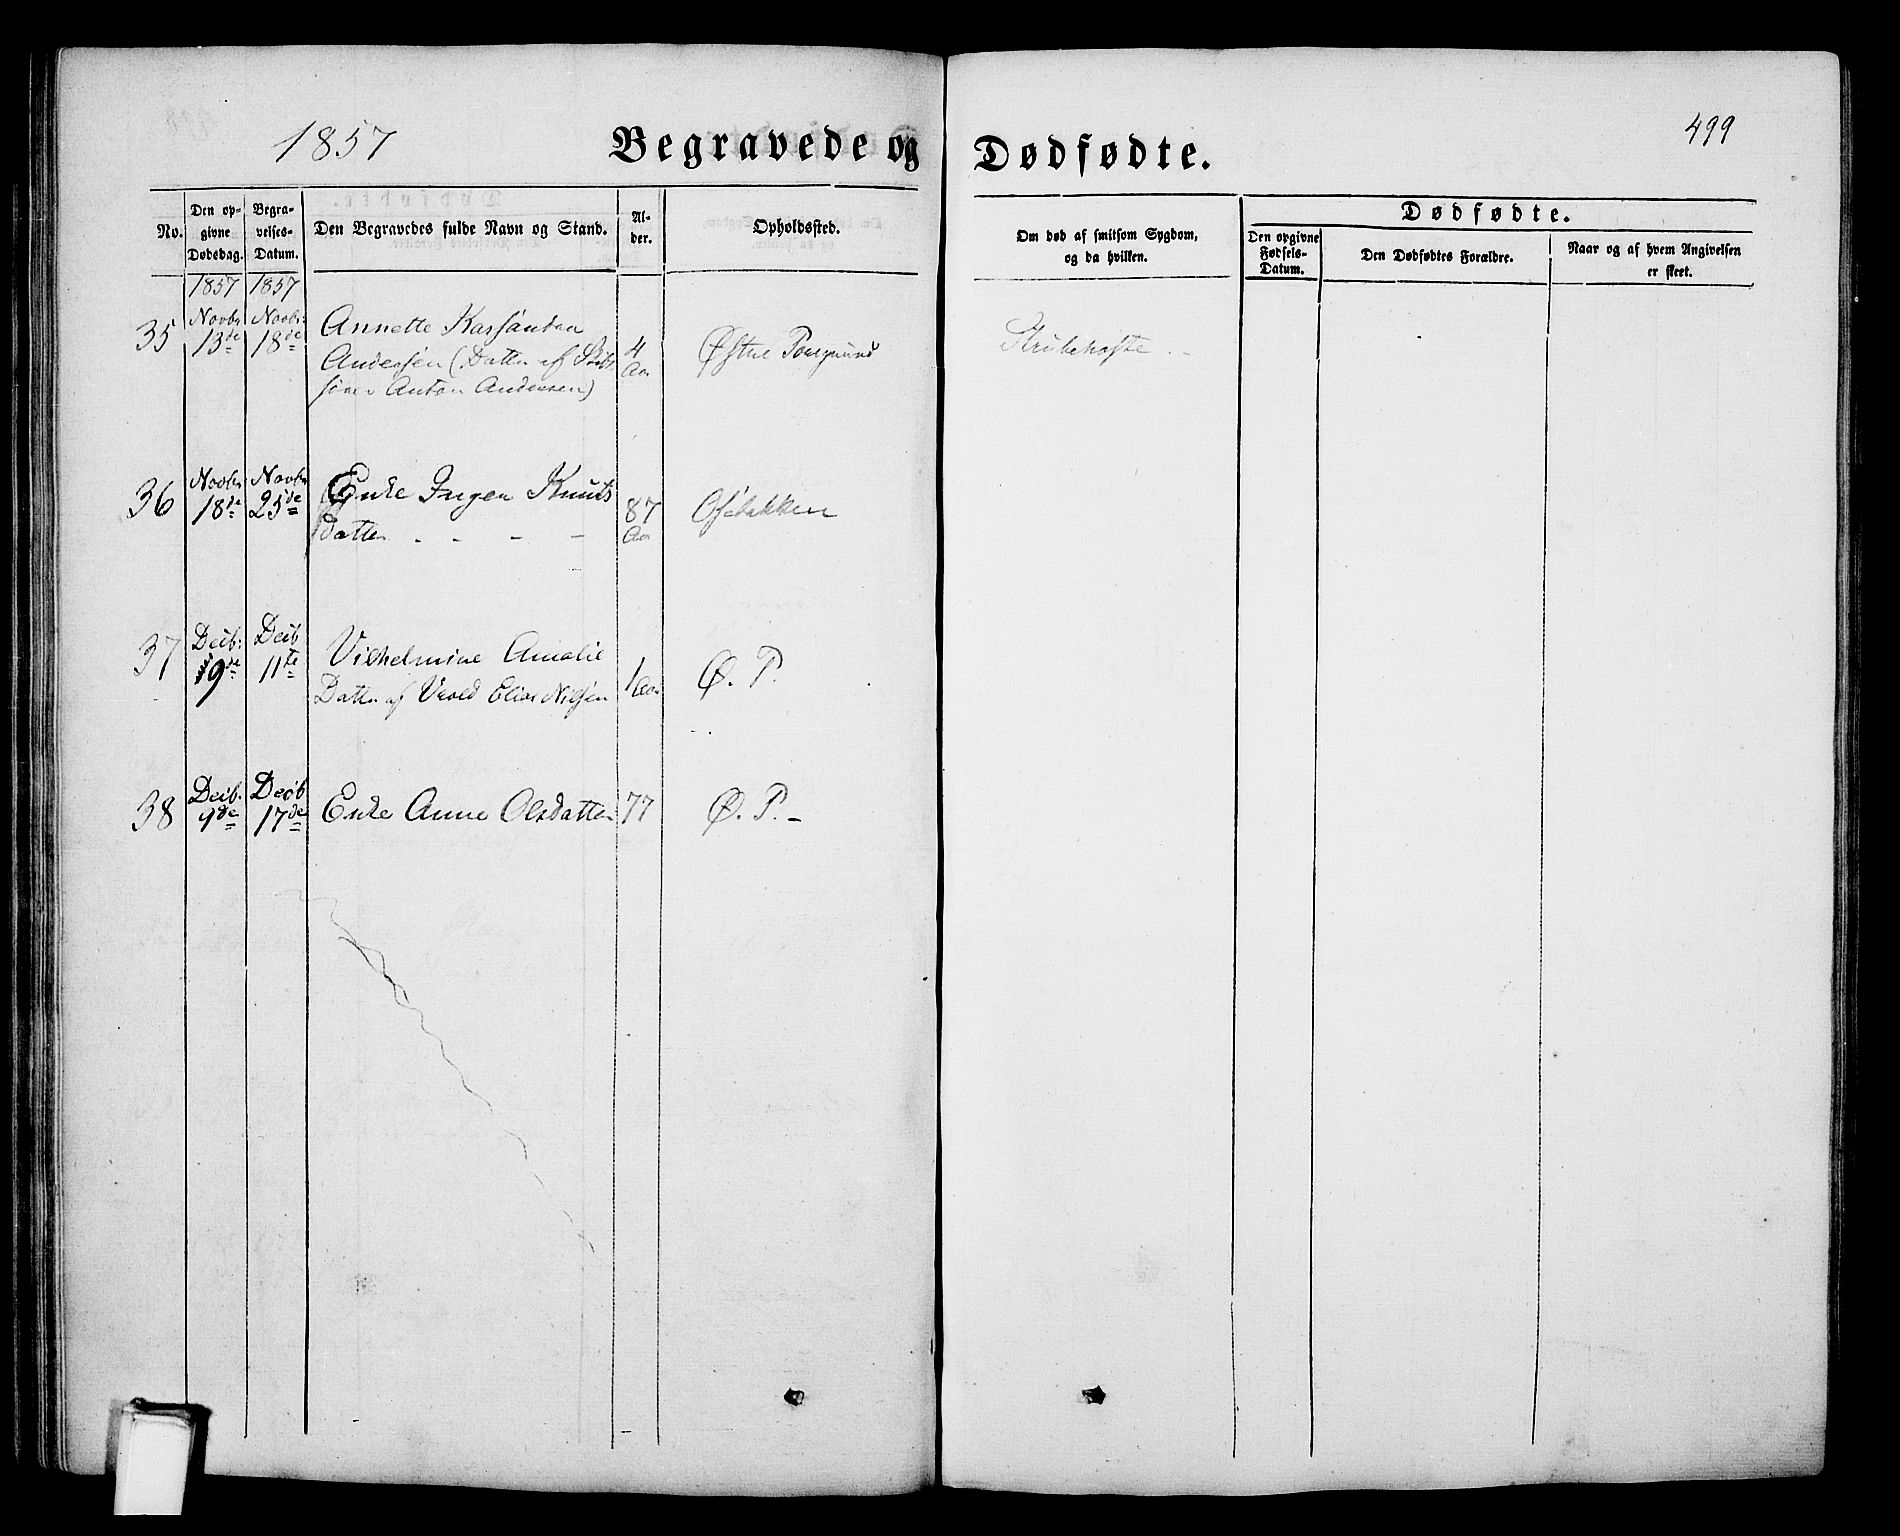 1857
Begravede og Dødfødte.
499
No.
Den op-
givne
Dødsdag.
Begra-
velses-
Datum.
Den Begravedes fulde Navn og Stand.
Al-
der.
Opholdssted.
Om død af smitsom Sygdom,
og da hvilken.
Dødfødte.
Den opgivne
Fødsels-
Datum.
Den Dødfødtes Forældre.
Naar og af hvem Angivelsen
er skeet.
1857 1857
35 Novbr 13de Novbr 18de Annette Kassandra 4 Aar Østre Porsgrund Strubehoste
Andersen (Datter af Skibs
fører Anton Andersen)
36 Novbr 18de Novbr 25de Enke Inger Knuts 87 Aar Osebakken
datter
37 Decb: 9de Decb 11te Vilhelmine Amalie 1 Aar Ø. P.
Datter af Elias Nilsen
38 Decb. 9de Decb 17de Enke Anne Olsdatter 77 Ø. P. -